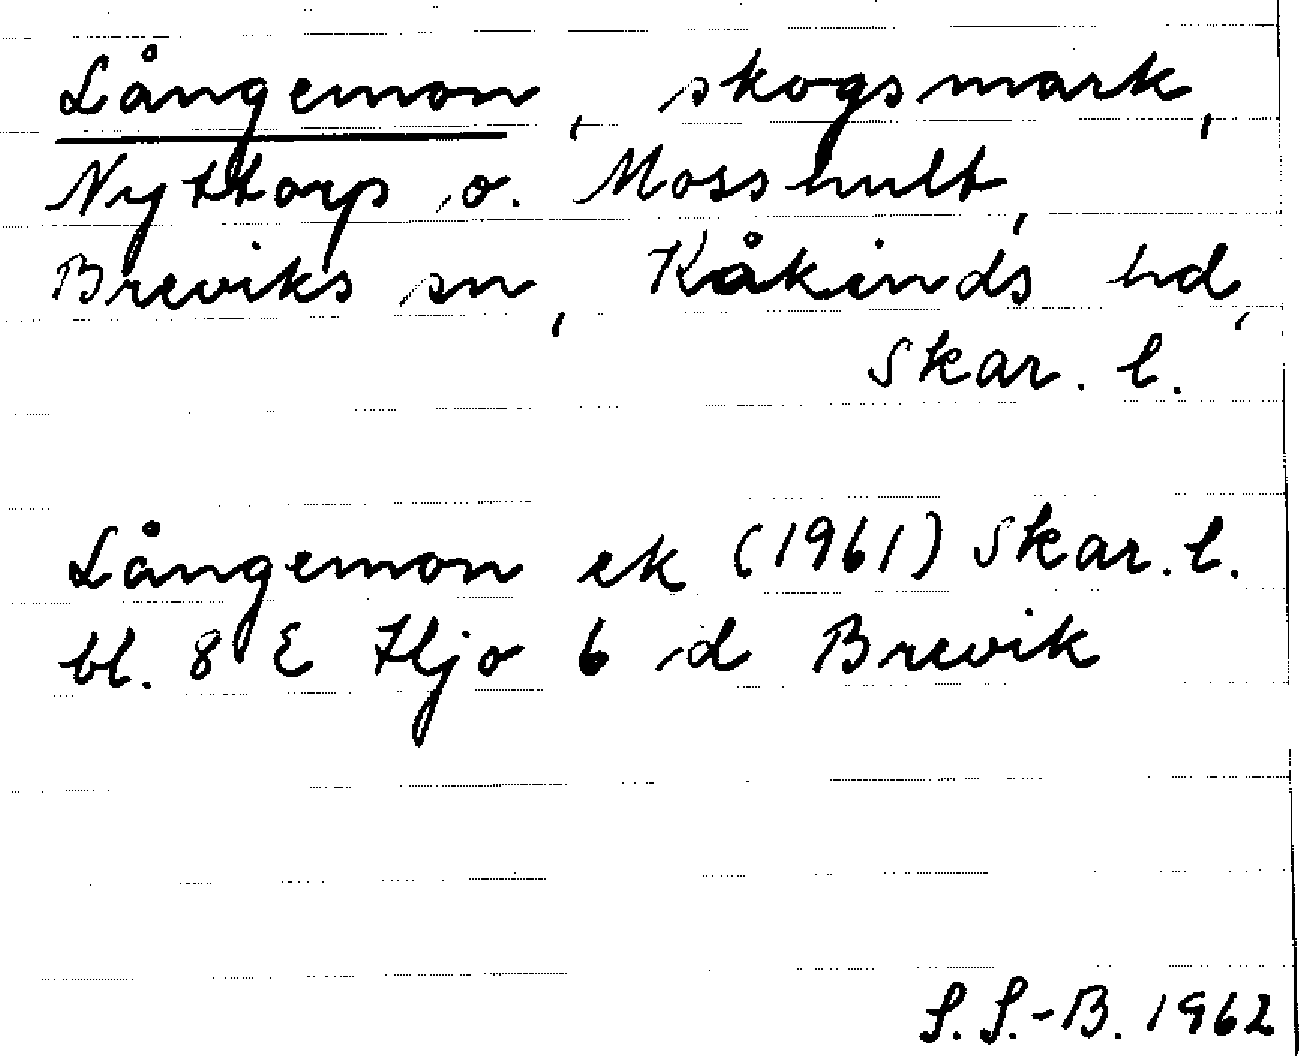 Långemon, skogsmark,
Nyttorp o. Mosshult,
Breviks sn, Kåkinds hd,
Skar. l.
Långemon ek (1961) Skar. l.
bl. 8 E Hjo 6 d Brevik
S. S.-B. 1962